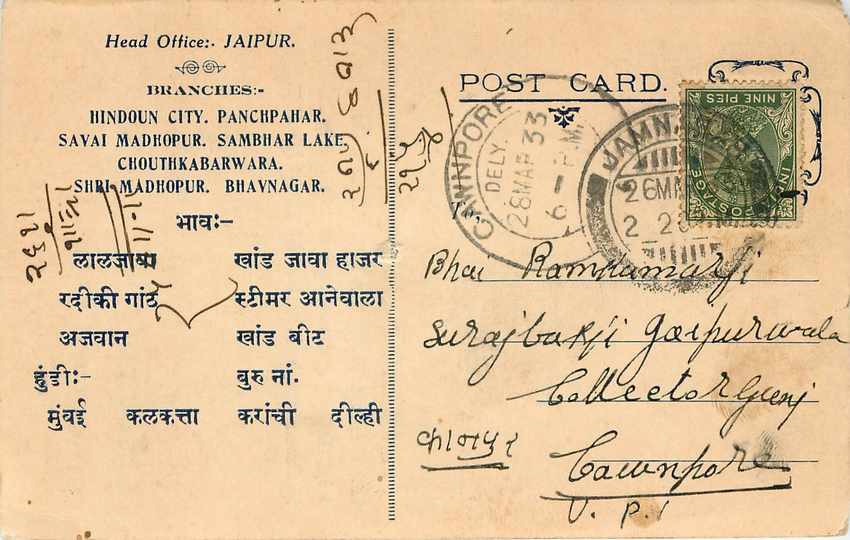 Head Office:- JAIPUR.
BRANCHES:-
HINDOUN CITY. PANCHPAHAR.
SAVAI MADHOPUR. SAMBHAR LAKE.
CHOUTHKABARWARA.
SHRI MADHOPUR. BHAVNAGAR.
भावः-
लालजावा खांड जावा हाजर
रदीकी गांठ स्टीमर आनेवाला
अजवान खांड बीट
हुंडीः- बुरु नां.
मुंबई कलकत्ता करांची दील्ही
POST CARD.
NINE PIES
INDIA POSTAGE
CAWNPORE
DELY.
28 MAR 33
6 - P.M.
JAMN
26
Bhai Ramkumarji
Surajbaxji Jaipurwala
Collectorgunj
कानपुर
Cawnpore
U. P.